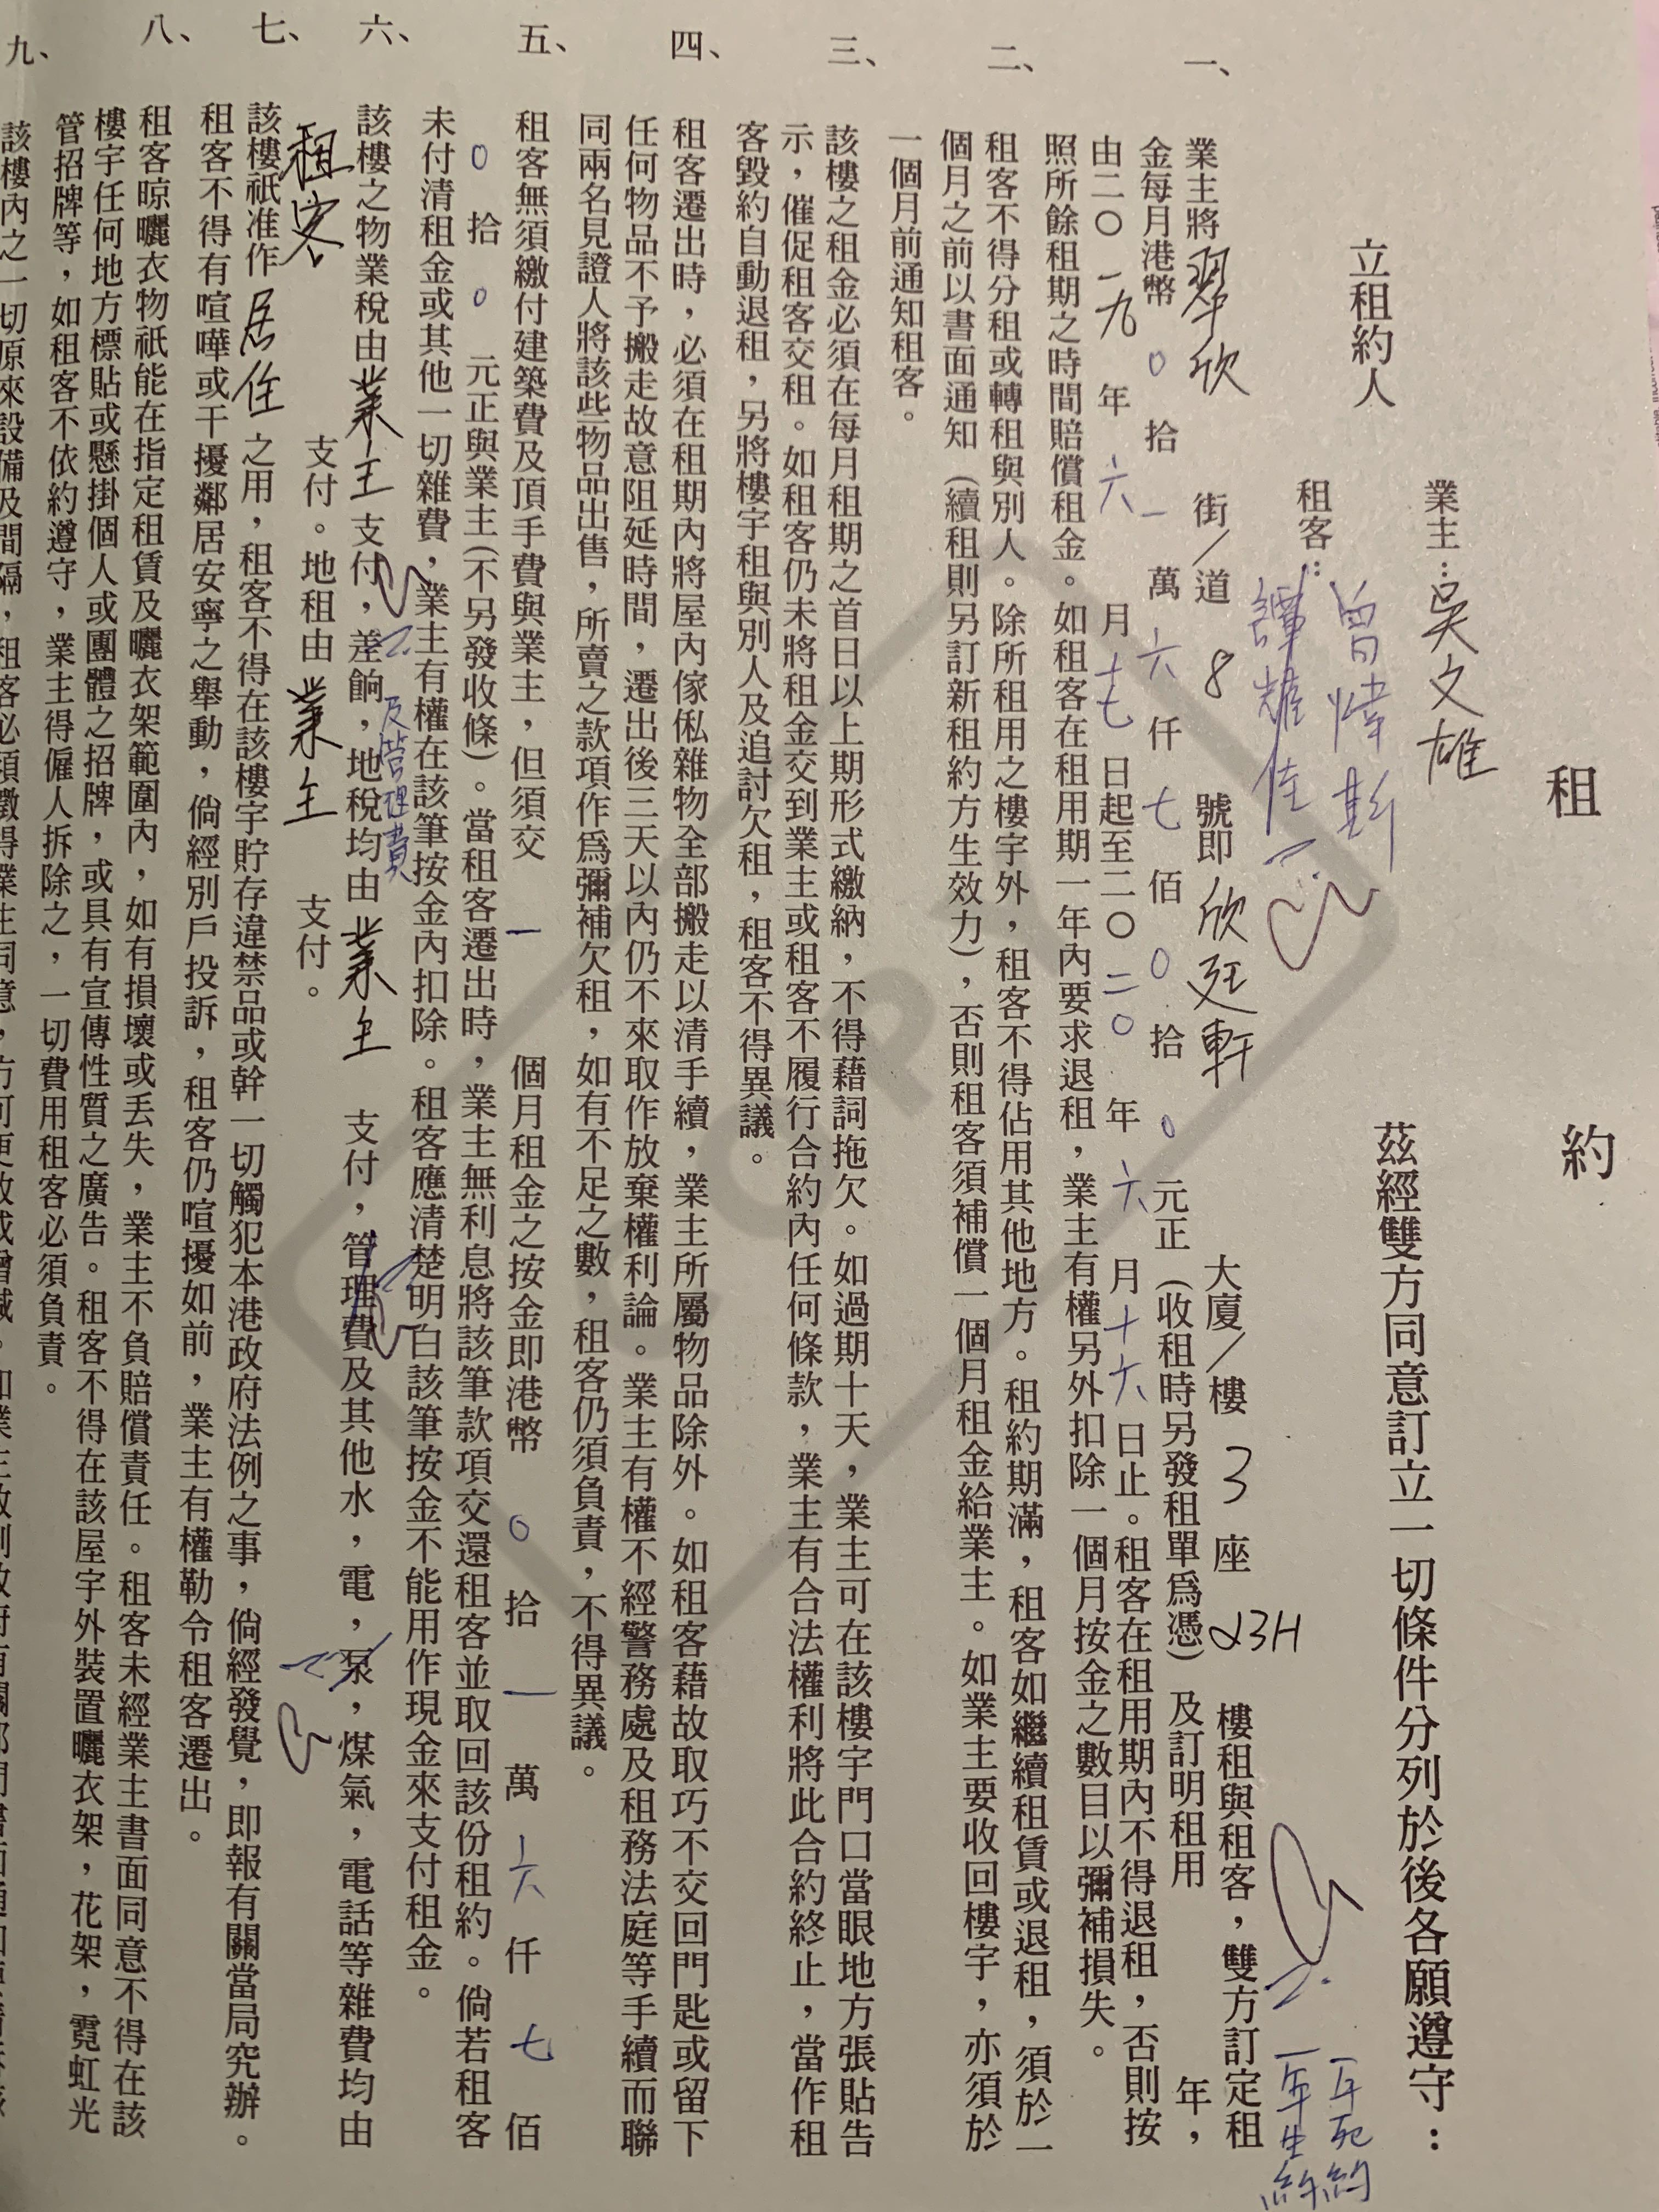 租約
業主：吳文雄
立租約人
茲經雙方同意訂立一切條件分列於後各願遵守：
租客：曾煒斯
譚耀佳
一年死約
一年生約
一、業主將翠欣街／道8號即欣廷軒大廈／樓3座23H樓租與租客，雙方訂定租
金每月港幣0拾一萬六仟七佰0拾0元正（收租時另發租單為憑）及訂明租用年，
由二〇一九年六月十七日起至二〇二0年六月十六日止。租客在租用期內不得退租，否則按
照所餘租期之時間賠償租金。如租客在租用期一年內要求退租，業主有權另外扣除一個月按金之數目以彌補損失。
二、租客不得分租或轉租與別人。除所租用之樓宇外，租客不得佔用其他地方。租約期滿，租客如繼續租賃或退租，須於一
個月之前以書面通知（續租則另訂新租約方生效力），否則租客須補償一個月租金給業主。如業主要收回樓宇，亦須於
一個月前通知租客。
三、該樓之租金必須在每月租期之首日以上期形式繳納，不得藉詞拖欠。如過期十天，業主可在該樓宇門口當眼地方張貼告
示，催促租客交租。如租客仍未將租金交到業主或租客不履行合約內任何條款，業主有合法權利將此合約終止，當作租
客毀約自動退租，另將樓宇租與別人及追討欠租，租客不得異議。
四、租客遷出時，必須在租期內將屋內傢俬雜物全部搬走以清手續，業主所屬物品除外。如租客藉故取巧不交回門匙或留下
任何物品不予搬走故意阻延時間，遷出後三天以內仍不來取作放棄權利論。業主有權不經警務處及租務法庭等手續而聯
同兩名見證人將該些物品出售，所賣之款項作為彌補欠租，如有不足之數，租客仍須負責，不得異議。
五、租客無須繳付建築費及頂手費與業主，但須交一個月租金之按金即港幣0拾一萬六仟七佰
0拾0元正與業主（不另發收條）。當租客遷出時，業主無利息將該筆款項交還租客並取回該份租約。倘若租客
未付清租金或其他一切雜費，業主有權在該筆按金內扣除。租客應清楚明白該筆按金不能用作現金來支付租金。
及營理費
六、該樓之物業稅由業主支付，差餉，地稅均由業主支付，管理費及其他水，電，泵，煤氣，電話等雜費均由
租客支付。地租由業主支付。
七、該樓祇准作居住之用，租客不得在該樓宇貯存違禁品或幹一切觸犯本港政府法例之事，倘經發覺，即報有關當局究辦。
租客不得有喧嘩或干擾鄰居安寧之舉動，倘經別戶投訴，租客仍喧擾如前，業主有權勒令租客遷出。
八、租客晾曬衣物祇能在指定租賃及曬衣架範圍內，如有損壞或丟失，業主不負賠償責任。租客未經業主書面同意不得在該
樓宇任何地方標貼或懸掛個人或團體之招牌，或具有宣傳性質之廣告。租客不得在該屋宇外裝置曬衣架，花架，霓虹光
管招牌等，如租客不依約遵守，業主得僱人拆除之，一切費用租客必須負責。
九、該樓內之一切原來設備及間隔，租客必須徵得業主同意，方可更改或增減。
COPY